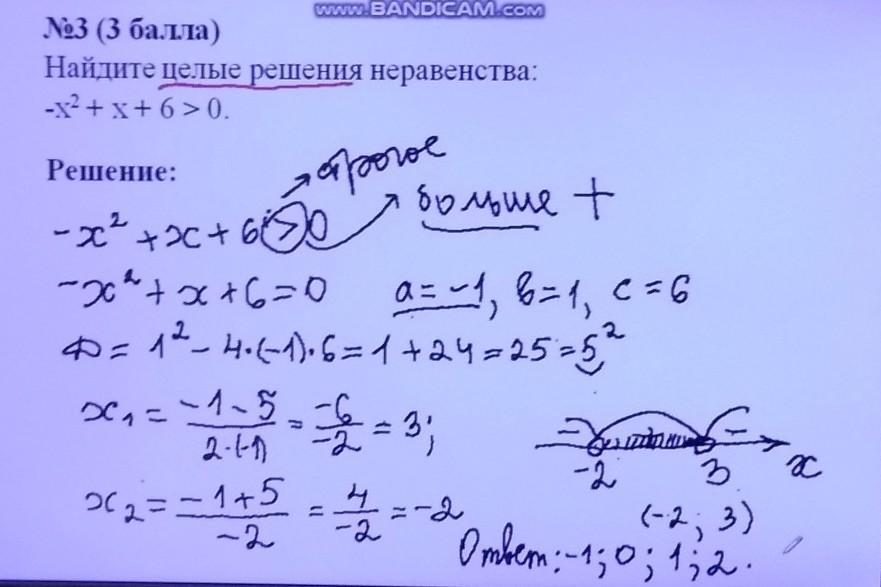 www.BANDICAM.com
№3 (3 балла)
Найдите целые решения неравенства:
-x² + x + 6 > 0.
Решение:
→ строгое
-x² + x + 6 > 0 → больше +
-x² + x + 6 = 0 a = -1, b = 1, c = 6
D = 1² - 4·(-1)·6 = 1 + 24 = 25 = 5²
x₁ = (-1 - 5)/(2·(-1)) = -6/-2 = 3;
- -
-2 3 x
x₂ = (-1 + 5)/-2 = 4/-2 = -2
(-2; 3)
Ответ: -1; 0; 1; 2.